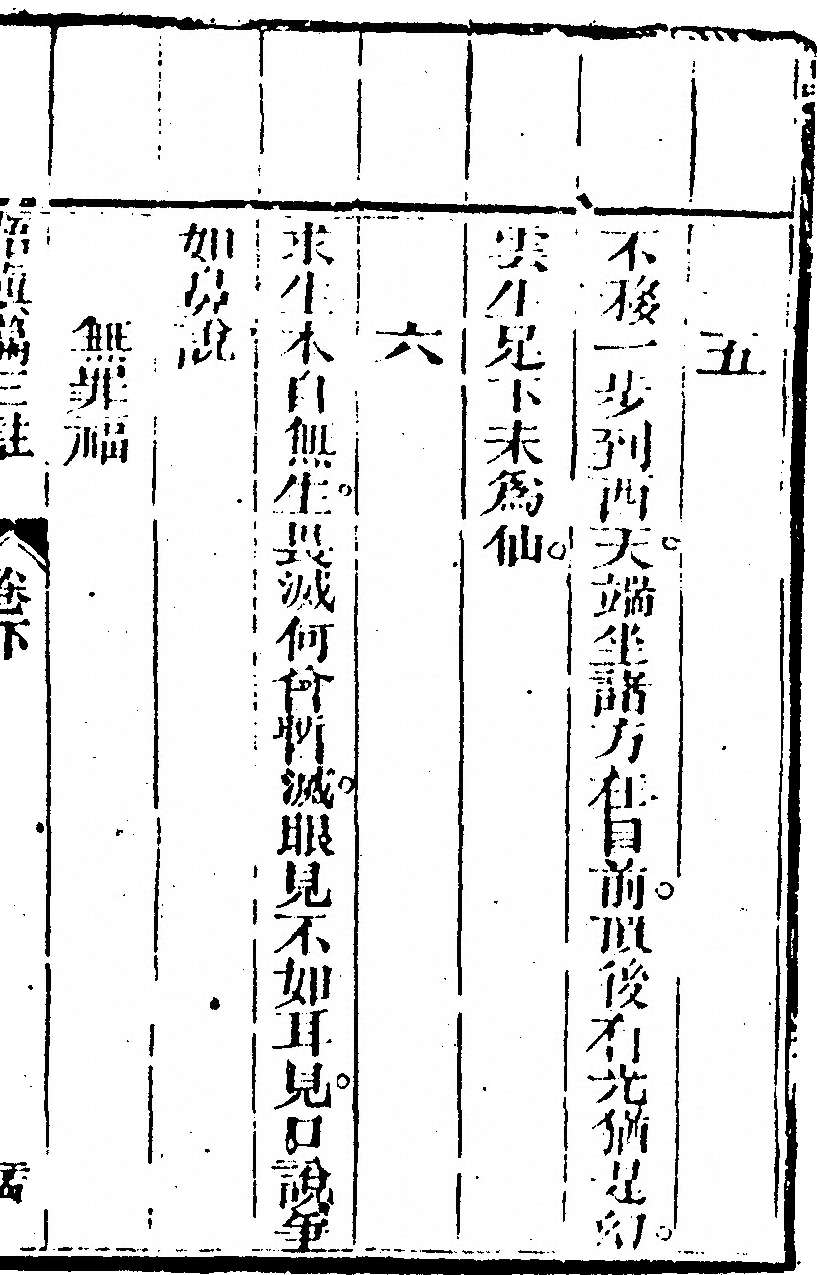 五
不移一步到西天端坐諸方在目前項後有光猶是幻
雲生足下未爲仙
六
求生本自無生畏滅何曾暫滅眼見不如耳見口說爭
如鼻說
無罪福
悟真篇三註 卷下